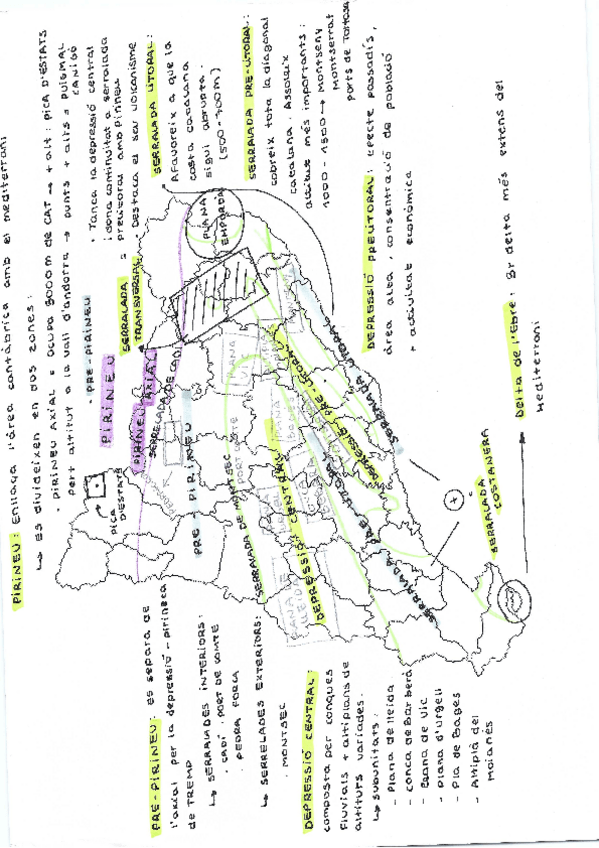 PIRINEU: Enllaça l'àrea cantàbrica amb el mediterrani
↳ es divideixen en dos zones:
· PIRINEU AXIAL = OCUPA 3000m DE CAT → + alt: PICA D'ESTATS
pert altitut a la vall d'andorra → punts + alts = PUIGMAL
CANIGÓ
· PRE-PIRINEU
SERRALADA TRANSVERSAL =
· Tanca la depressió central
idona continuitat a serralada
prelitoral amb Pirineu
· Destaca el seu volcanisme
SERRALADA LITORAL:
Afavoreix a que la
costa catalana
sigui abrupta.
(500-700m)
SERRALADA PRE-LITORAL:
cobreix tota la diagonal
catalana. Assoleix
altitut més importants:
1000-1500 → Montseny
Montserrat
ports de Tortosa
DEPRESSIÓ PRELITORAL: efecte passadís,
àrea alta, consentració de població
+ activitat econòmica
Delta de l'Ebre: 3r delta més extens del
Mediterrani
PIRINEU
PIRINEU AXIAL
SERRALADA DE CADÍ
PICA D'ESTATS
PRE-PIRINEU
SERRALADA DE MONTSEC
PLANA EMPORDÀ
PLANA LLEIDA
DEPRESSIÓ CENTRAL
SERRALADA PRE-LITORAL
DEPRESSIÓ PRE-LITORAL
SERRALADA LITORAL
+
SERRALADA COSTANERA
PRE-PIRINEU: es separa de
l'axial per la depressió-pirineca
de TREMP
↳ SERRALADES INTERIORS:
· CADÍ · PORT DE COMTE
· PEDRA FORCA
↳ SERRELADES EXTERIORS:
· MONTSEC
DEPRESSIÓ CENTRAL:
composta per conques
fluvials + altiplans de
altituts variades.
↳ SUBUNITATS:
- Plana de lleida
- conca de Barberà
- Plana de Vic
- plana d'urgell
- Pla de Bages
- Altiplà del
Moianès